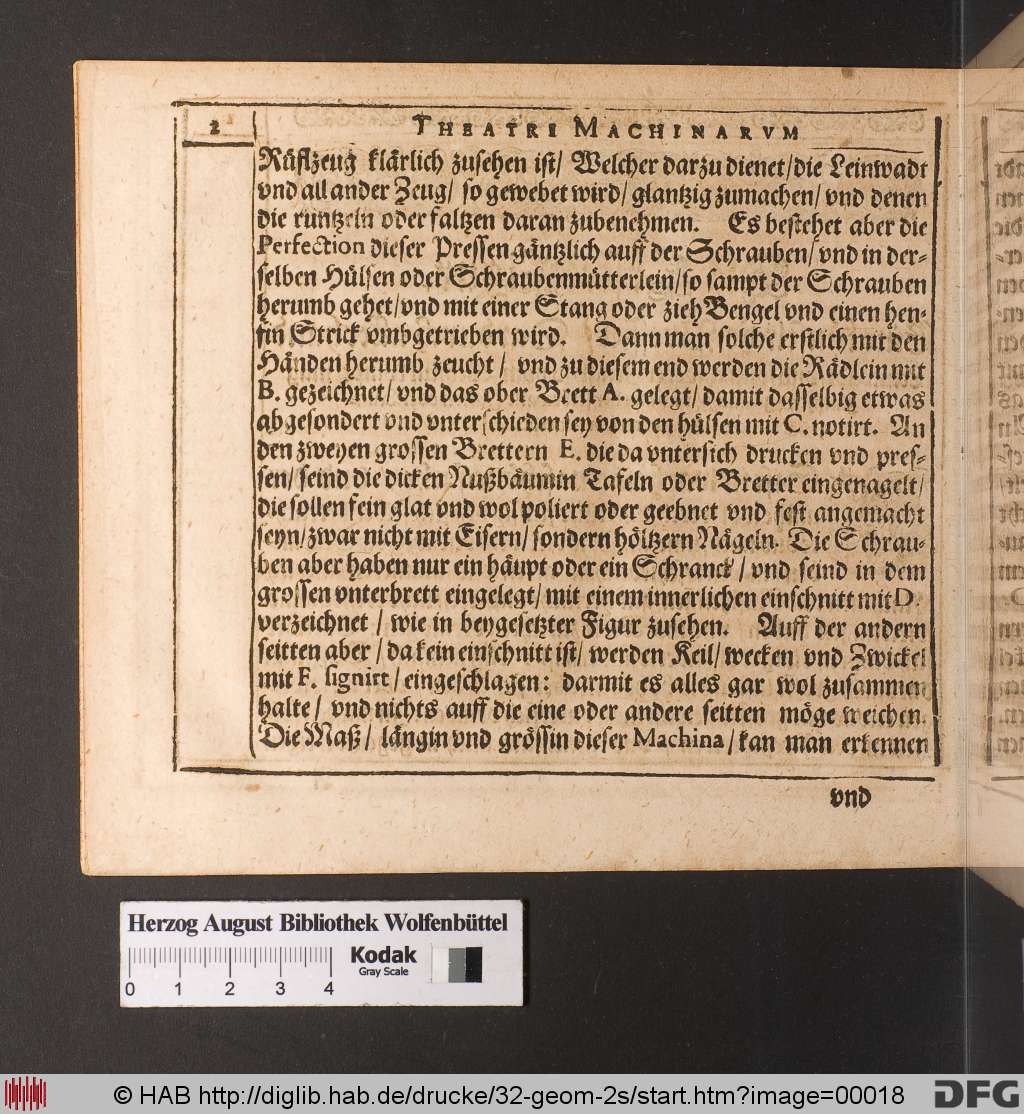 2
THEATRI MACHINARVM
Rüstzeug klärlich zusehen ist/ Welcher darzu dienet/die Leinwadt
vnd all ander Zeug/ so gewebet wird/ glantzig zumachen/ vnd denen
die runtzeln oder faltzen daran zubenehmen. Es bestehet aber die
Perfection dieser Pressen gäntzlich auff der Schrauben/ vnd in der-
selben Hülsen oder Schraubenmütterlein/so sampt der Schrauben
herumb gehet/vnd mit einer Stang oder zieh Bengel vnd einen hen-
fin Strick vmbgetrieben wird. Dann man solche erstlich mit den
Händen herumb zeucht/ vnd zu diesem end werden die Rädlein mit
B. gezeichnet/ vnd das ober Brett A. gelegt/ damit dasselbig etwas
abgesondert vnd vnterschieden sey von den hülsen mit C. notirt. An
den zweyen grossen Brettern E. die da vntersich drucken vnd pres-
sen/ seind die dicken Nußbäumin Tafeln oder Bretter eingenagelt/
die sollen fein glat vnd wol poliert oder geebnet vnd fest angemacht
seyn/zwar nicht mit Eisern/ sondern höltzern Nägeln. Die Schrau-
ben aber haben nur ein häupt oder ein Schranck/ vnd seind in dem
grossen vnterbrett eingelegt/ mit einem innerlichen einschnitt mit D.
verzeichnet/ wie in beygesetzter Figur zusehen. Auff der andern
seitten aber/ da kein einschnitt ist/ werden Keil/ wecken vnd Zwickel
mit F. signirt/ eingeschlagen: darmit es alles gar wol zusammen
halte/ vnd nichts auff die eine oder andere seitten möge weichen.
Die Maß/ längin vnd grössin dieser Machina/ kan man erkennen
vnd
Herzog August Bibliothek Wolfenbüttel
Kodak
Gray Scale
0 1 2 3 4
© HAB http://diglib.hab.de/drucke/32-geom-2s/start.htm?image=00018
DFG